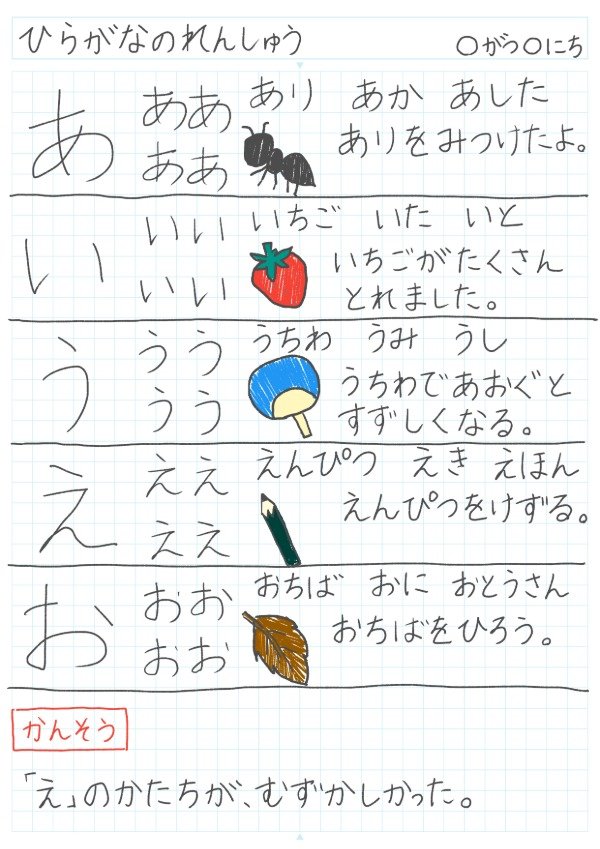 ひらがなのれんしゅう
〇がつ〇にち
あ
ああ
ああ
あり あか あした
ありをみつけたよ。
い
いい
いい
いちご いた いと
いちごがたくさん
とれました。
う
うう
うう
うちわ うみ うし
うちわであおぐと
すずしくなる。
え
ええ
ええ
えんぴつ えき えほん
えんぴつをけずる。
お
おお
おお
おちば おに おとうさん
おちばをひろう。
かんそう
「え」のかたちが、むずかしかった。